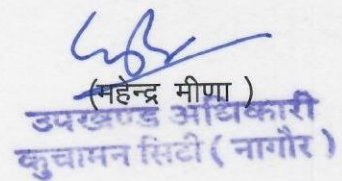 (महेन्द्र मीणा )
उपखण्ड अधिकारी
कुचामन सिटी ( नागौर )